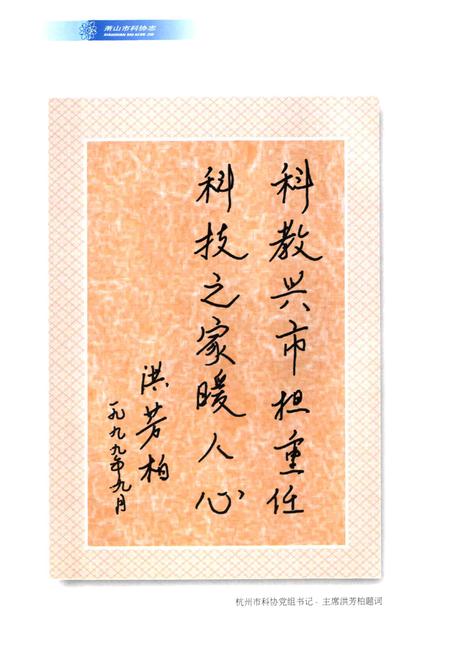 萧山市科协志
XIAOSHAN SHI KEXIE ZHI
科教兴市担重任
科技之家暖人心
洪芳柏
一九九九年九月
杭州市科协党组书记、主席洪芳柏题词